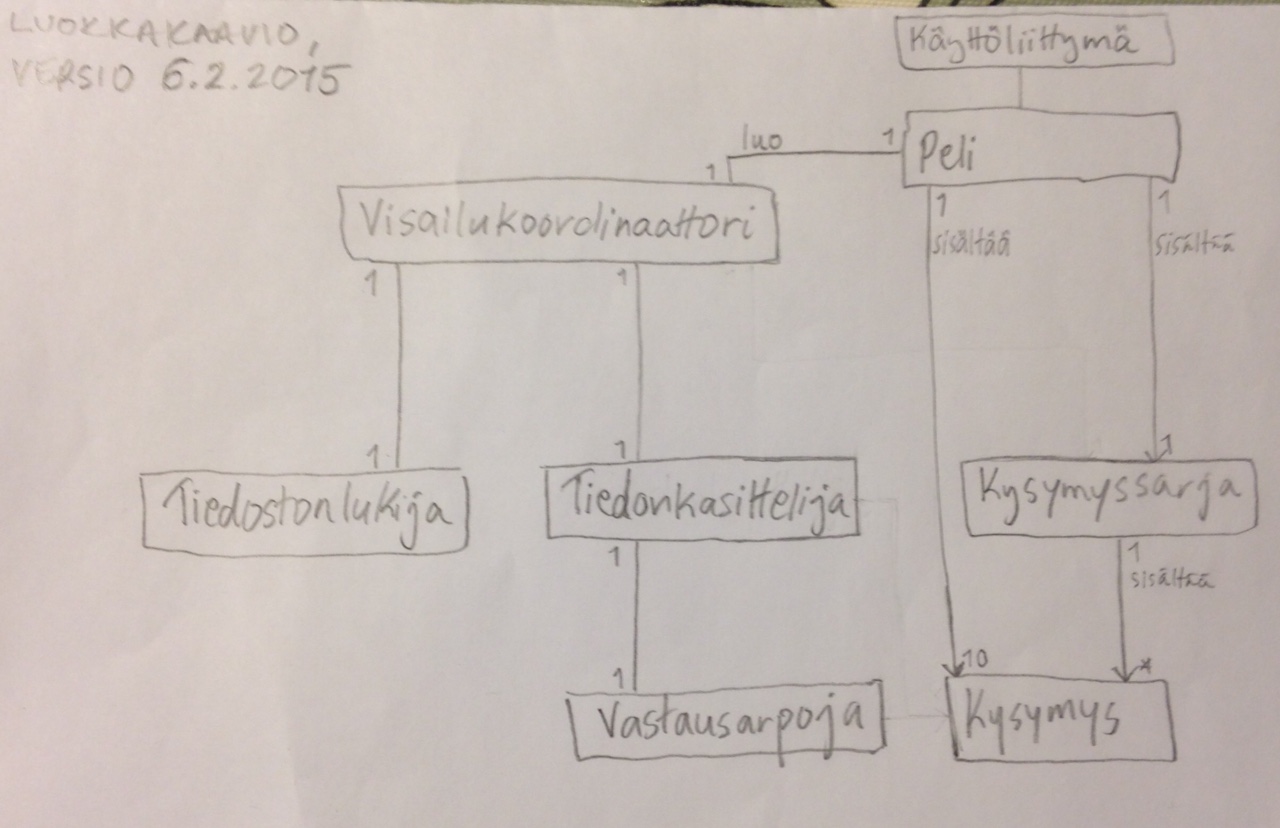 LUOKKAKAAVIO,
VERSIO 6.2.2015
Käyttöliittymä
luo
1
1
Peli
Visailukoordinaattori
1
1
1
sisältää
1
sisältää
1
1
1
Tiedostonlukija
Tiedonkasittelija
Kysymyssarja
1
1
sisältää
1
10
*
Vastausarpoja
Kysymys